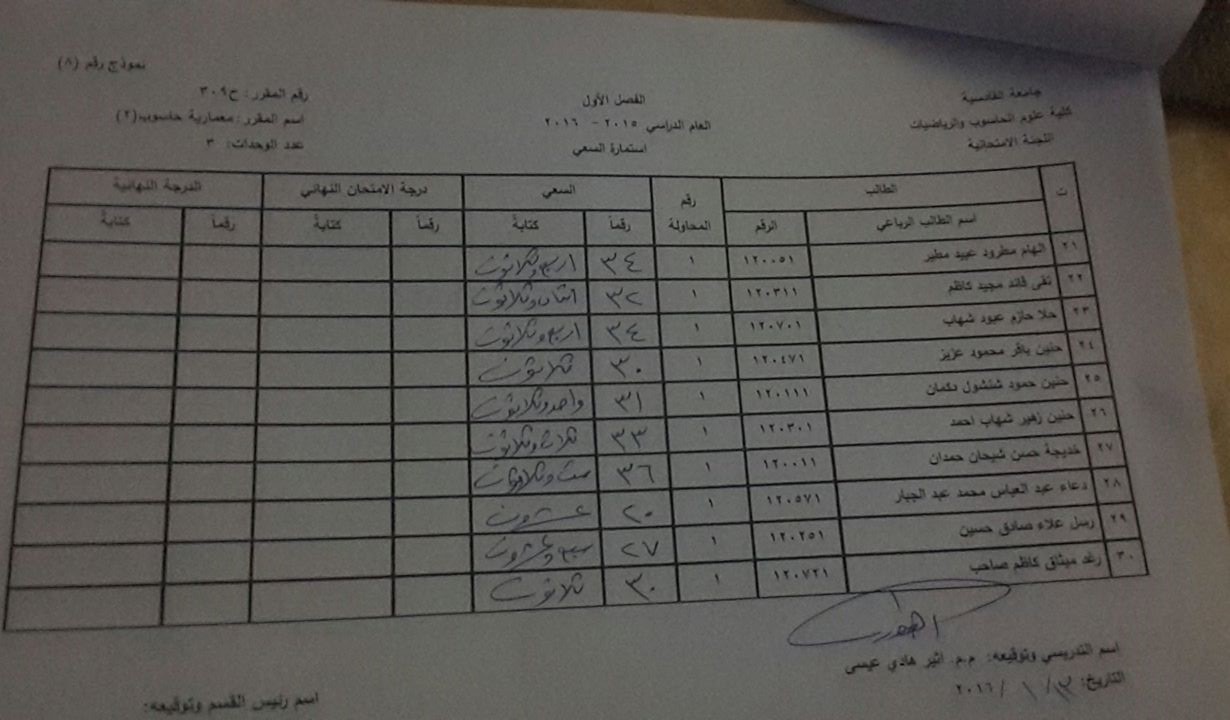 نموذج رقم (٨)
جامعة القادسية
كلية علوم الحاسوب والرياضيات
اللجنة الامتحانية
الفصل الأول
العام الدراسي ٢٠١٥ - ٢٠١٦
استمارة السعي
رقم المقرر: ح٣٠٩
اسم المقرر: معمارية حاسوب(٢)
عدد الوحدات: ٣
ت الطالب رقم المحاولة السعي درجة الامتحان النهائي الدرجة النهائية
اسم الطالب الرباعي الرقم رقماً كتابةً رقماً كتابةً رقماً كتابةً
٢١ الهام مطرود عبيد مطير ١٢٠٠٥١ ١ ٣٤ اربع وثلاثون
٢٢ تقى قائد مجيد كاظم ١٢٠٣١١ ١ ٣٢ اثنان وثلاثون
٢٣ حلا حازم عبود شهاب ١٢٠٧٠١ ١ ٣٤ اربع وثلاثون
٢٤ حنين باقر محمود عزيز ١٢٠٤٧١ ١ ٣٠ ثلاثون
٢٥ حنين حمود شنشول دكمان ١٢٠١١١ ١ ٣١ واحد وثلاثون
٢٦ حنين زهير شهاب احمد ١٢٠٣٠١ ١ ٣٣ ثلاث وثلاثون
٢٧ خديجة حسن شيحان حمدان ١٢٠٠١١ ١ ٣٦ ست وثلاثون
٢٨ دعاء عبد العباس محمد عبد الجبار ١٢٠٥٧١ ١ ٢٠ عشرون
٢٩ رسل علاء صادق حسين ١٢٠٢٥١ ١ ٢٧ سبع وعشرون
٣٠ رغد ميثاق كاظم صاحب ١٢٠٧٢١ ١ ٣٠ ثلاثون
اسم التدريسي وتوقيعه: م.م. اثير هادي عيسى
التاريخ: / ١ / ٢٠١٦
اسم رئيس القسم وتوقيعه: